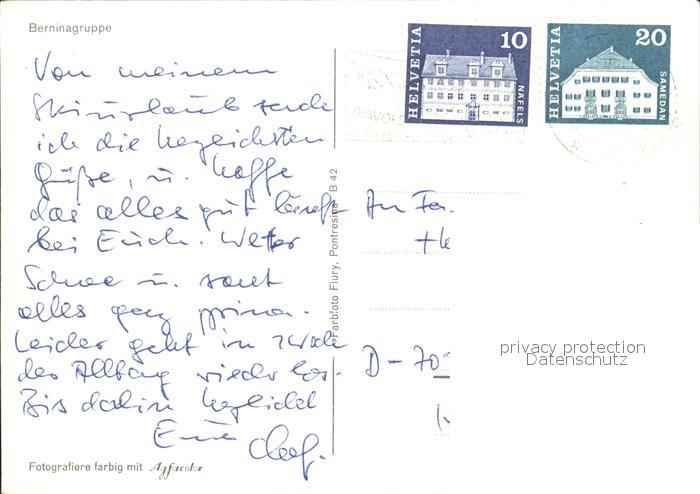 Berninagruppe
HELVETIA 10 NÄFELS
HELVETIA 20 SAMEDAN
Von meinem
Skiurlaub sende
ich die herzlichsten
Grüße, u. hoffe
das alles gut läuft
bei Euch. Wetter
Schnee u. sonst
alles ganz prima.
Leider geht in 1 Woche
der Alltag wieder los.
Bis dahin herzlichst
Euer
Farbfoto Flury, Pontresina B 42
An Fa.
D - 70
privacy protection
Datenschutz
Fotografiere farbig mit Agfacolor